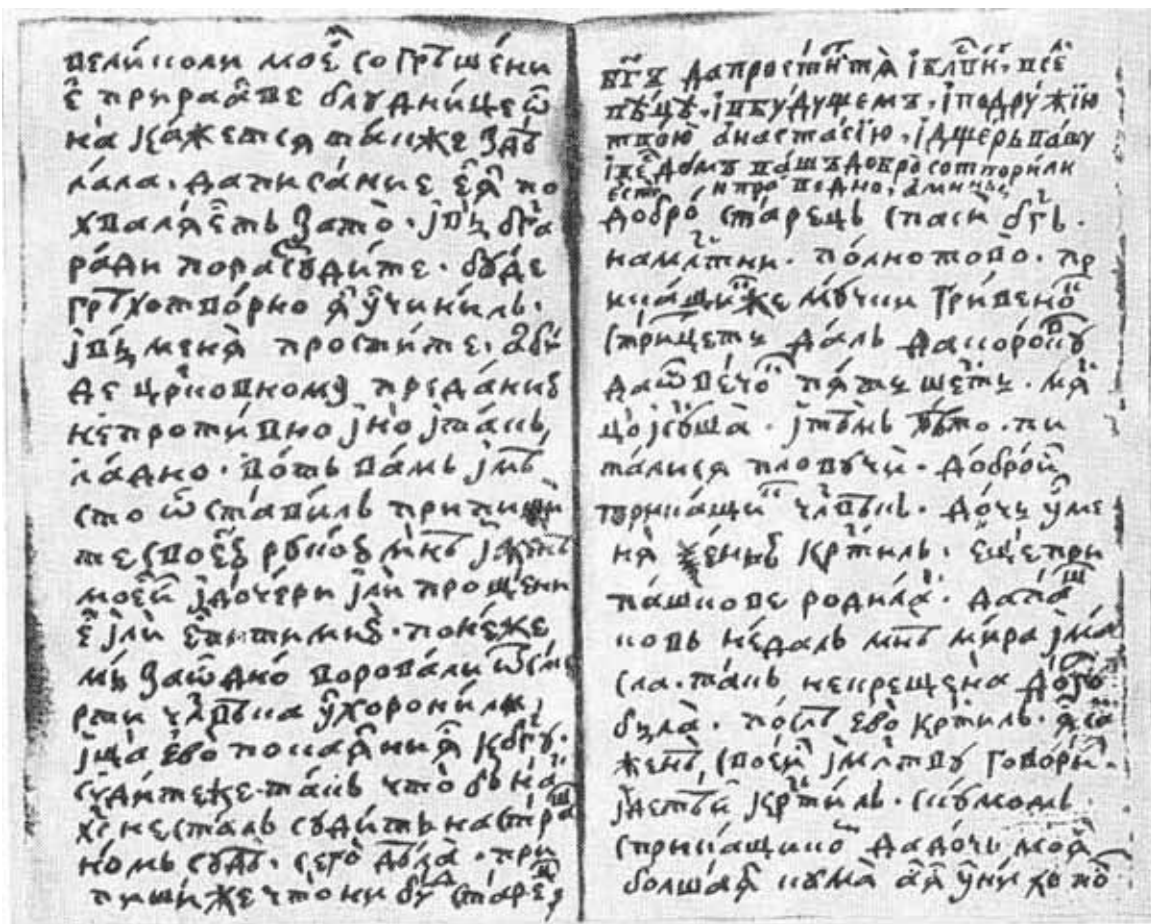 вели́коли мое́ согрѣше́ни
е҆ прираа́ве блудни́цею҆
на̀ ка́жется та́кже здѣ
лала. да писа́ние е҆я̀ по
хваля́етъ зато̀. и вы̀ бг҃а
ра́ди порасуди́те. бу́де
грѣхотво́рно я҆ у҆чини́лъ.
и вы̀ меня̀ прости́те. а҆бу́
де црко́вному преда́нию
непроти́вно ино̀ и та́къ
ла́дно. во́тъ ва́мъ и мѣ́
сто ѡ҆ста́вилъ припиши
те свое́ю руко́ю мнѣ̀ и женѣ̀
мое́й и до́чери и҆лѝ проще́ни
е҆ и҆лѝ е҆питимию̀. поне́же
мы̀ заѡ҆дно̀ ворова́ли ѿ сме
рти члвѣ́ка у҆хорони́ли,
ища̀ ево̀ покая́ния къ бг҃у.
суди́теже та́къ что́бы на́съ
хс҃ не ста́лъ суди́ть на стра́ш
номъ судѣ̀. сего̀ дѣ́ла. при
пиши же что́ни бу́дь старецъ
бг҃ъ да прости́тъ тя̀ и в лвѣ́къ. в се́
вѣ́цѣ. и в бу́дущемъ. и подру́жию
твою̀ анаста́сию. и дщерь ва́шу
и ве́сь до́мъ ва́шъ добро̀ сотвори́ли
есте и пра́ведно. а́минь.
добро́ ста́рецъ спаси́ бг҃ъ.
на ми́лостыни. по́лно тово̀. пр
ика́щи́къже му́чки гри́венокъ
с три́цеть да́лъ да коро́вку
да ѡ҆ве́чокъ пя́ть ше́сть. мя́
цо̀ и су́ша̀. и тѣ́мъ лѣ́то. пи
та́лися пловучѝ. до́брой
прика́щикъ члвѣ́къ. до́чь у҆ме
ня̀ ксе́нью крѣ́стилъ. е҆ще при
па́шкове роди́ла. да па́ш
ковъ не да́лъ мнѣ̀ ми́ра и ма
сла. та́къ некреще́на до́лго
была̀. по́слѣ ево̀ крести́лъ. я҆ са́мъ
женѣ̀ свое́й и моли́тву говори́лъ.
и дѣте́й и крѣ́стилъ. с кумомъ
с прика́щикомъ да до́чь моя̀
болша́я кума̀ а҆ я҆ у҆ ни́хъ по́пъ